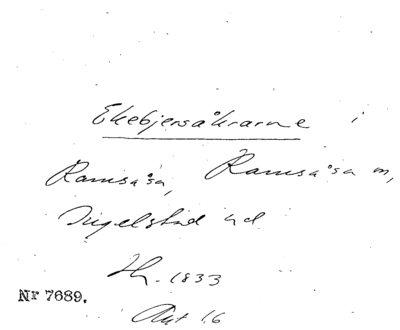 Ekebjersåkrarne i
Ramsåsa, Ramsåsa sn,
Ingelstad hd
Sk. 1833
Akt 16
Nr 7689.